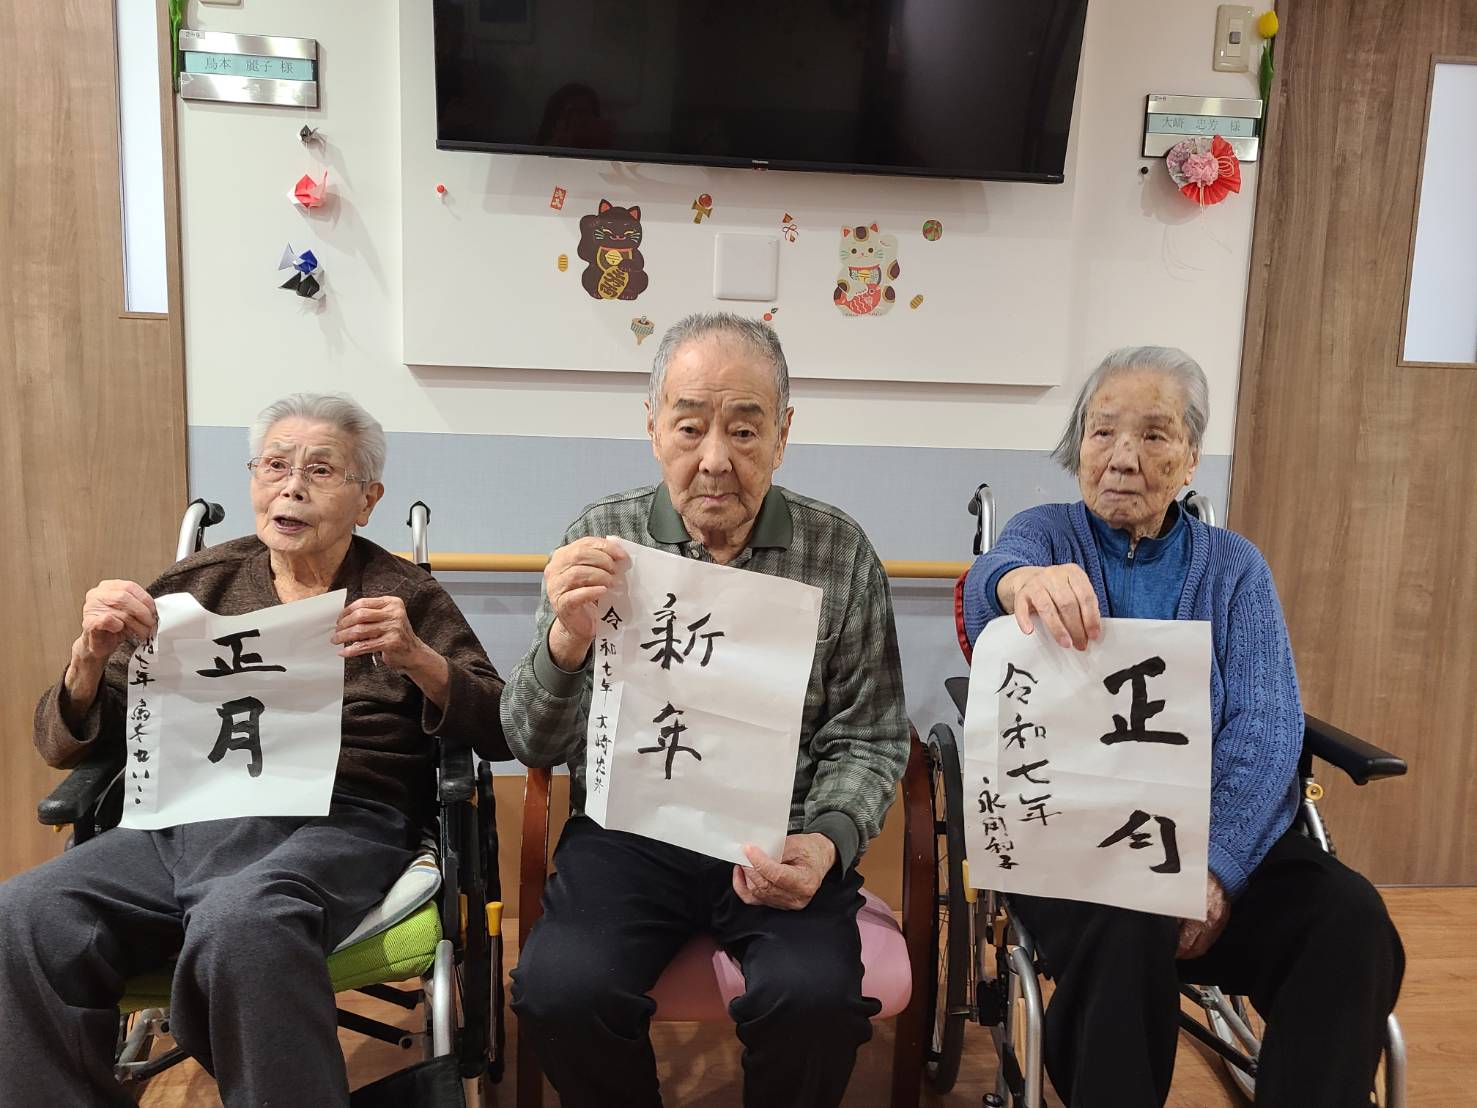 鳥本 麗子 様
大崎 忠芳 様
Hisense
正月
七年
新年
令和七年 大崎忠芳
正月
令和七年
永岡和子